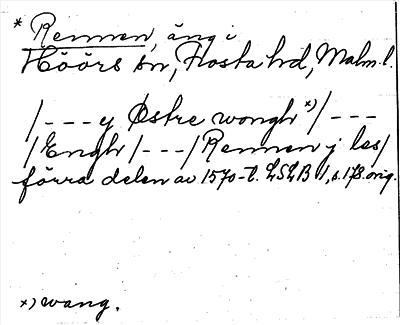 * Rennen, äng i
Höörs sn, Frosta hd, Malm. l.
/---y Østre wongh *)/---
/Engh/---/Rennen j les/
förra delen av 1570-t. LSLB 1, s. 178. orig.
*) wang.